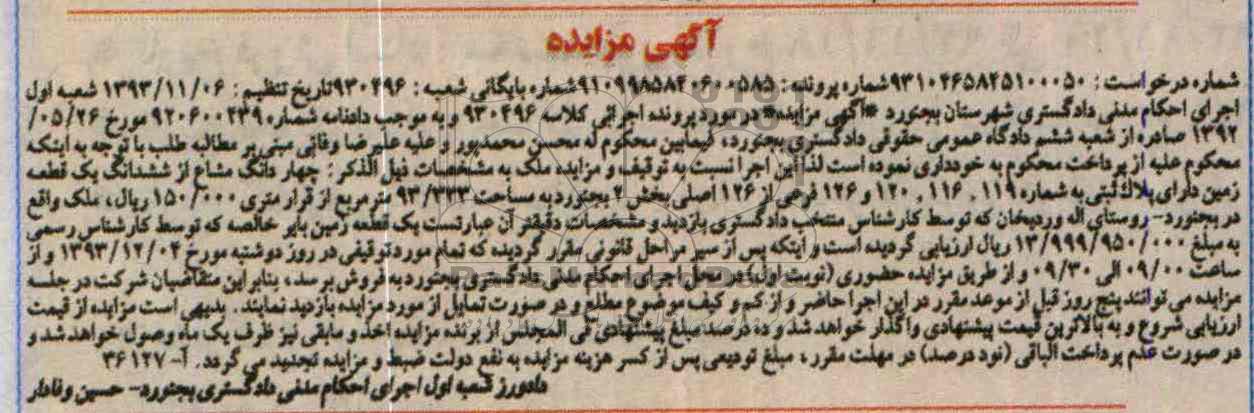 آگهی مزایده
شماره درخواست : ۹۳۱۰۴۶۵۸۴۵۱۰۰۰۵۰ شماره پرونده : ۹۱۰۹۹۸۵۸۴۰۶۰۰۵۸۵ شماره بایگانی شعبه : ۹۳۰۴۹۶ تاریخ تنظیم : ۱۳۹۳/۱۱/۰۶ شعبه اول
اجرای احکام مدنی دادگستری شهرستان بجنورد «آگهی مزایده» در مورد پرونده اجرائی کلاسه ۹۳۰۴۹۶ و به موجب دادنامه شماره ۹۲۰۶۰۰۲۳۹ مورخ ۰۵/۲۶/
۱۳۹۲ صادره از شعبه ششم دادگاه عمومی حقوقی دادگستری بجنورد، فیمابین محکوم له محسن محمدپور و علیه علیرضا وفائی مبنی بر مطالبه طلب با توجه به اینکه
محکوم علیه از پرداخت محکوم به خودداری نموده است لذا این اجرا نسبت به توقیف و مزایده ملک به مشخصات ذیل الذکر : چهار دانگ مشاع از ششدانگ یک قطعه
زمین دارای پلاک ثبتی به شماره ۱۱۹ , ۱۱۶ , ۱۲۰ و ۱۲۶ فرعی از ۱۲۶ اصلی بخش ۲ بجنورد به مساحت ۹۳/۳۳۳ متر مربع از قرار متری ۱۵۰/۰۰۰ ریال، ملک واقع
در بجنورد- روستای اله وردیخان که توسط کارشناس منتخب دادگستری بازدید و مشخصات دقیقتر آن عبارتست یک قطعه زمین بایر خالصه که توسط کارشناس رسمی
به مبلغ ۱۳/۹۹۹/۹۵۰/۰۰۰ ریال ارزیابی گردیده است و اینکه پس از سیر مراحل قانونی مقرر گردیده که تمام مورد توقیفی در روز دوشنبه مورخ ۱۳۹۳/۱۲/۰۴ و از
ساعت ۰۹/۰۰ الی ۰۹/۳۰ و از طریق مزایده حضوری (نوبت اول) در محل اجرای احکام مدنی دادگستری بجنورد به فروش برسد، بنابراین متقاضیان شرکت در جلسه
مزایده می توانند پنج روز قبل از موعد مقرر در این اجرا حاضر و از کم و کیف موضوع مطلع و در صورت تمایل از مورد مزایده بازدید نمایند. بدیهی است مزایده از قیمت
ارزیابی شروع و به بالاترین قیمت پیشنهادی واگذار خواهد شد و ده درصد مبلغ پیشنهادی فی المجلس از برنده مزایده اخذ و مابقی نیز ظرف یک ماه وصول خواهد شد و
در صورت عدم پرداخت الباقی (نود درصد) در مهلت مقرر، مبلغ تودیعی پس از کسر هزینه مزایده به نفع دولت ضبط و مزایده تجدید می گردد. آ-۳۶۱۲۷
دادورز شعبه اول اجرای احکام مدنی دادگستری بجنورد- حسین وفادار